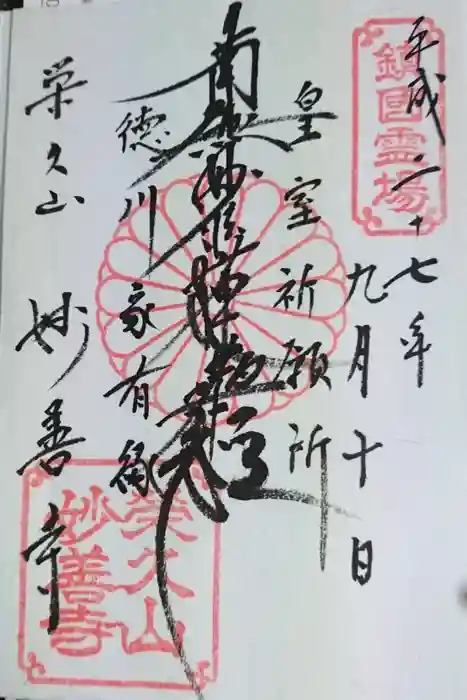 平成二十七年
九月十日
鎮國霊場
皇室祈願所
南無妙法蓮華経
徳川家有縁
栄久山 妙善寺
栄久山
妙善寺